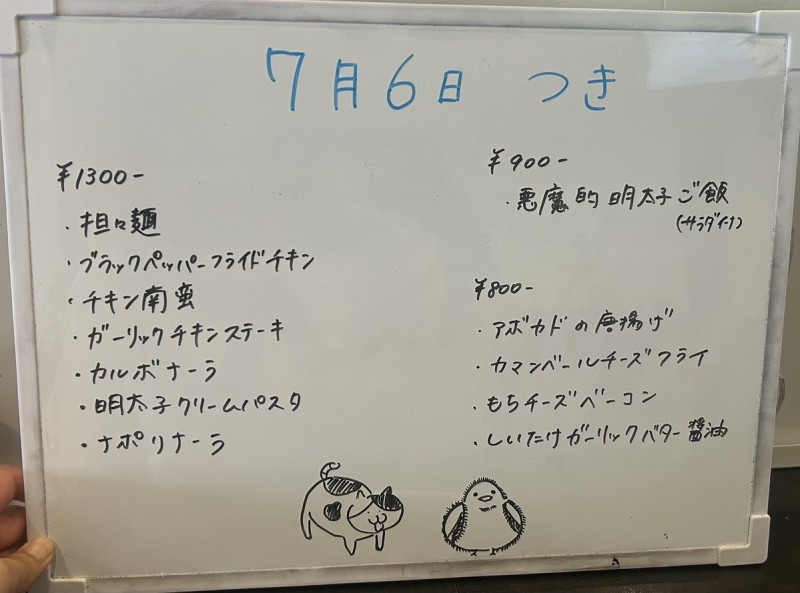 7月6日 つき
¥1300-
・担々麺
・ブラックペッパーフライドチキン
・チキン南蛮
・ガーリックチキンステーキ
・カルボナーラ
・明太子クリームパスタ
・ナポリナーラ
¥900-
・悪魔的明太子ご飯
(サラダイナリ)
¥800-
・アボカドの唐揚げ
・カマンベールチーズフライ
・もちチーズベーコン
・しいたけガーリックバター醤油